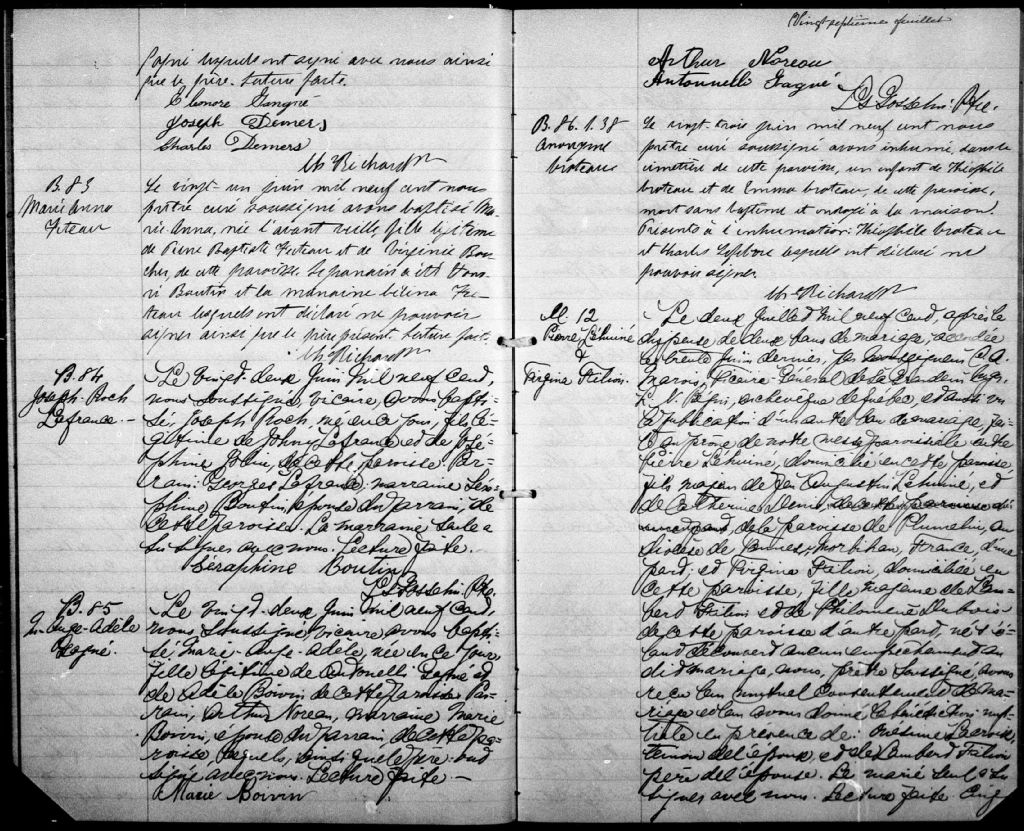 Gagné lesquels ont signé avec nous ainsi
que le père. Lecture faite.
Eleonore Gangné
Joseph Demers
Charles Demers
Ch. Richard Ptr
B. 83
Marie Anna
Feteau
Le vingt-un juin mil neuf cent nous
prêtre curé soussigné avons baptisé Ma-
rie Anna, née l'avant veille fille légitime
de Pierre Baptiste Feteau et de Virginie Bou-
cher, de cette paroisse. Le parrain a été
Boutin et la marraine Fe-
teau lesquels ont déclaré ne pouvoir
signer ainsi que le père présent. Lecture faite.
Ch. Richard Ptr
B. 84
Joseph-Roch
Lafrance.-
Le vingt-deux Juin Mil neuf cent,
nous soussigné vicaire, avons bapti-
sé, Joseph Roch, né en ce jour, fils lé-
gitime de Johny Lafrance et de José-
phine de cette paroisse. Par-
rain: Georges Lafrance, marraine Séra-
phine Boutin, épouse du parrain, de
cette paroisse. La marraine seule a
su signer avec nous. Lecture faite.
Séraphine Boutin
L G Gosselin. Ptre.
B. 85
M. Ange-Adèle
Gagné.
Le vingt-deux Juin mil neuf cent,
nous, soussigné, vicaire avons bapti-
sé, Marie-Ange-Adèle, née en ce jour
fille légitime de Antonelli Gagné et
de Adèle Boivin de cette paroisse. Par-
rain, Arthur Noreau, marraine Marie
Boivin, épouse du parrain, de cette pa-
roisse, lesquels, ainsi que le père ont
signé avec nous. Lecture faite -
Marie Boivin
Vingt septième feuillet
Arthur Noreau
Antonnelli Gagné
L G Gosselin. Ptre.
B. 86. S. 38
Anonyme
Croteau
Le vingt-trois juin mil neuf cent nous
prêtre curé soussigné avons inhumé dans le
cimetière de cette paroisse, un enfant de Théophile
Croteau et de Emma Croteau, de cette paroisse,
mort sans baptême et ondoyé à la maison.
Présents à l'inhumation: Théophile Croteau
et Charles Lefebvre lesquels ont déclaré ne
pouvoir signer.
Ch. Richard Ptr
M. 12
Pierre Léhuiné
&
Virginia Fation.
Le deux Juillet Mil neuf cent, après la
dispense de deux bans de mariage, accordée
le trente Juin dernier, par Monseigneur C. A.
Marois, Vicaire-Général de Sa Grandeur Mgr.
L. N. Bégin, archevêque de Québec, et aussi vu
la publication d'un autre ban de mariage, fai-
te au prône de notre messe paroissiale entre
Pierre Léhuiné, domicilié en cette paroisse,
fils majeur de feu Augustin Léhuiné, et
de Catherine Denis, de cette paroisse
d'une part, de la paroisse de Plumelin, au
diocèse de Vannes, Morbihan, France, d'une
part; et Virginia Fation, domiciliée en
cette paroisse, fille majeure de Lam-
bert Fation et de Philomène Dubois
de cette paroisse d'autre part, ne s'é-
tant découvert aucun empêchement au
dit mariage, nous, prêtre soussigné, avons
reçu leur mutuel consentement de ma-
riage et leur avons donné la bénédiction nup-
tiale en présence de: Onésime Lacroix,
témoin de l'époux, et de Lambert Fation
père de l'épouse. Le marié seul a su
signer avec nous. Lecture faite Cinq